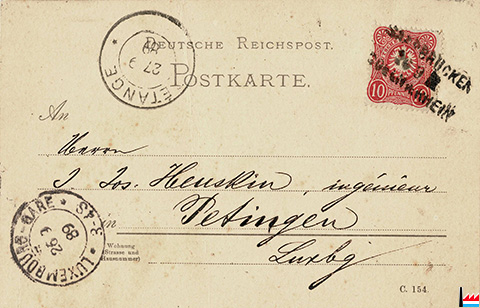 DEUTSCHE REICHSPOST.
POSTKARTE.
ETANGE
27 9
10 PFENNIG 10
SAARBRÜCKEN
An
Herrn
J Jos. Heuskin, ingénieur
in Petingen
Luxbg
Wohnung
(Strasse und
Hausnummer)
LUXEMBOURG-GARE * 3-4S *
89
C. 154.